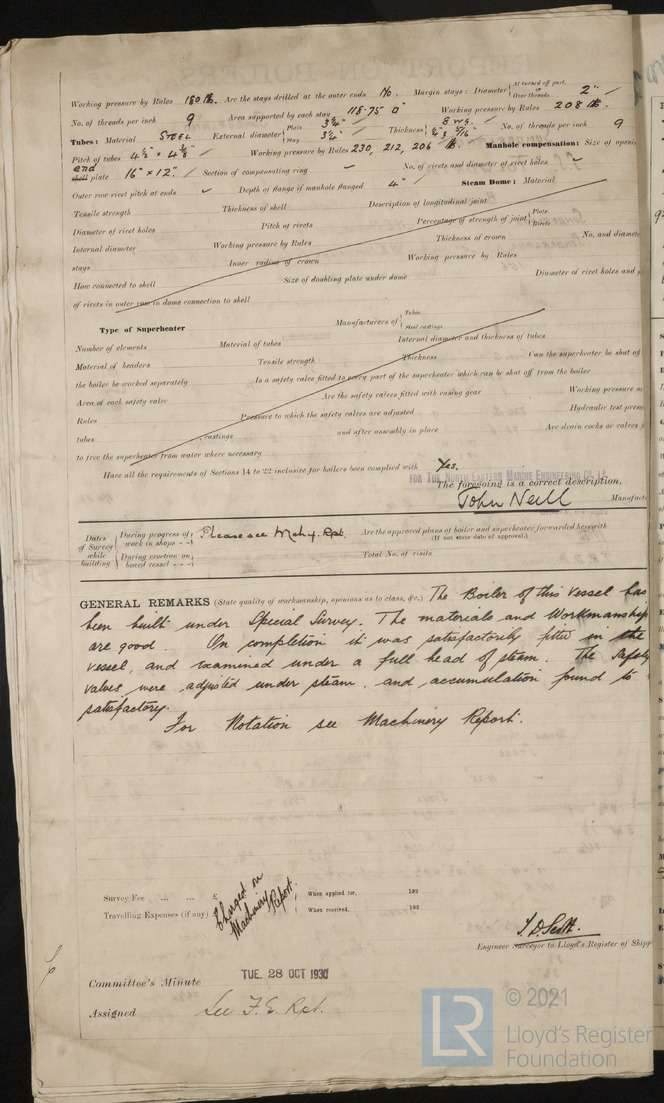 Working pressure by Rules 180 lb. Are the stays drilled at the outer ends No. Margin stays: Diameter { At turned off part, or Over threads 2"
No. of threads per inch 9 Area supported by each stay 118.75 □" Working pressure by Rules 208 lb.
Tubes: Material STEEL External diameter { Plain 3¼" Stay 3¼" Thickness { 8 WG. 5/16" No. of threads per inch 9
Pitch of tubes 4½" × 4⅜" Working pressure by Rules 230, 212, 206 lb. Manhole compensation: Size of openi
end shell plate 16" × 12" Section of compensating ring No. of rivets and diameter of rivet holes
Outer row rivet pitch at ends Depth of flange if manhole flanged 4" Steam Dome: Material
Tensile strength Thickness of shell Description of longitudinal joint
Diameter of rivet holes Pitch of rivets Percentage of strength of joint { Plate Rivets
Internal diameter Working pressure by Rules Thickness of crown No. and diamete
stays Inner radius of crown Working pressure by Rules
How connected to shell Size of doubling plate under dome Diameter of rivet holes and p
of rivets in outer row in dome connection to shell
Type of Superheater Manufacturers of { Tubes Steel castings
Number of elements Material of tubes Internal diameter and thickness of tubes
Material of headers Tensile strength Thickness Can the superheater be shut off
the boiler be worked separately Is a safety valve fitted to every part of the superheater which can be shut off from the boiler
Area of each safety valve Are the safety valves fitted with easing gear Working pressure as
Rules Pressure to which the safety valves are adjusted Hydraulic test press
tubes castings and after assembly in place Are drain cocks or valves
to free the superheater from water where necessary
Have all the requirements of Sections 14 to 22 inclusive for boilers been complied with Yes.
FOR THE NORTH EASTERN MARINE ENGINEERING Co. Ld.
The foregoing is a correct description,
John Neill Manufact
Dates of Survey while building { During progress of work in shops - - } Please see Mchy. Rpt. Are the approved plans of boiler and superheater forwarded herewith
(If not state date of approval.)
During erection on board vessel - - - Total No. of visits
GENERAL REMARKS (State quality of workmanship, opinions as to class, &c.) The Boiler of this Vessel has
been built under Special Survey. The materials and Workmanship
are good. On completion it was satisfactorily fitted in the
vessel, and examined under a full head of steam. The Safety
valves were adjusted under steam, and accumulation found to
satisfactory.
For Notation see Machinery Report.
Survey Fee ... ... £ Charged on Machinery Report. When applied for, 192
Travelling Expenses (if any) When received, 192
J. D. Scott.
Engineer Surveyor to Lloyd's Register of Shipp
Committee's Minute TUE. 28 OCT 1930
Assigned See F. E. Rpt.
LR © 2021
Lloyd's Register
Foundation